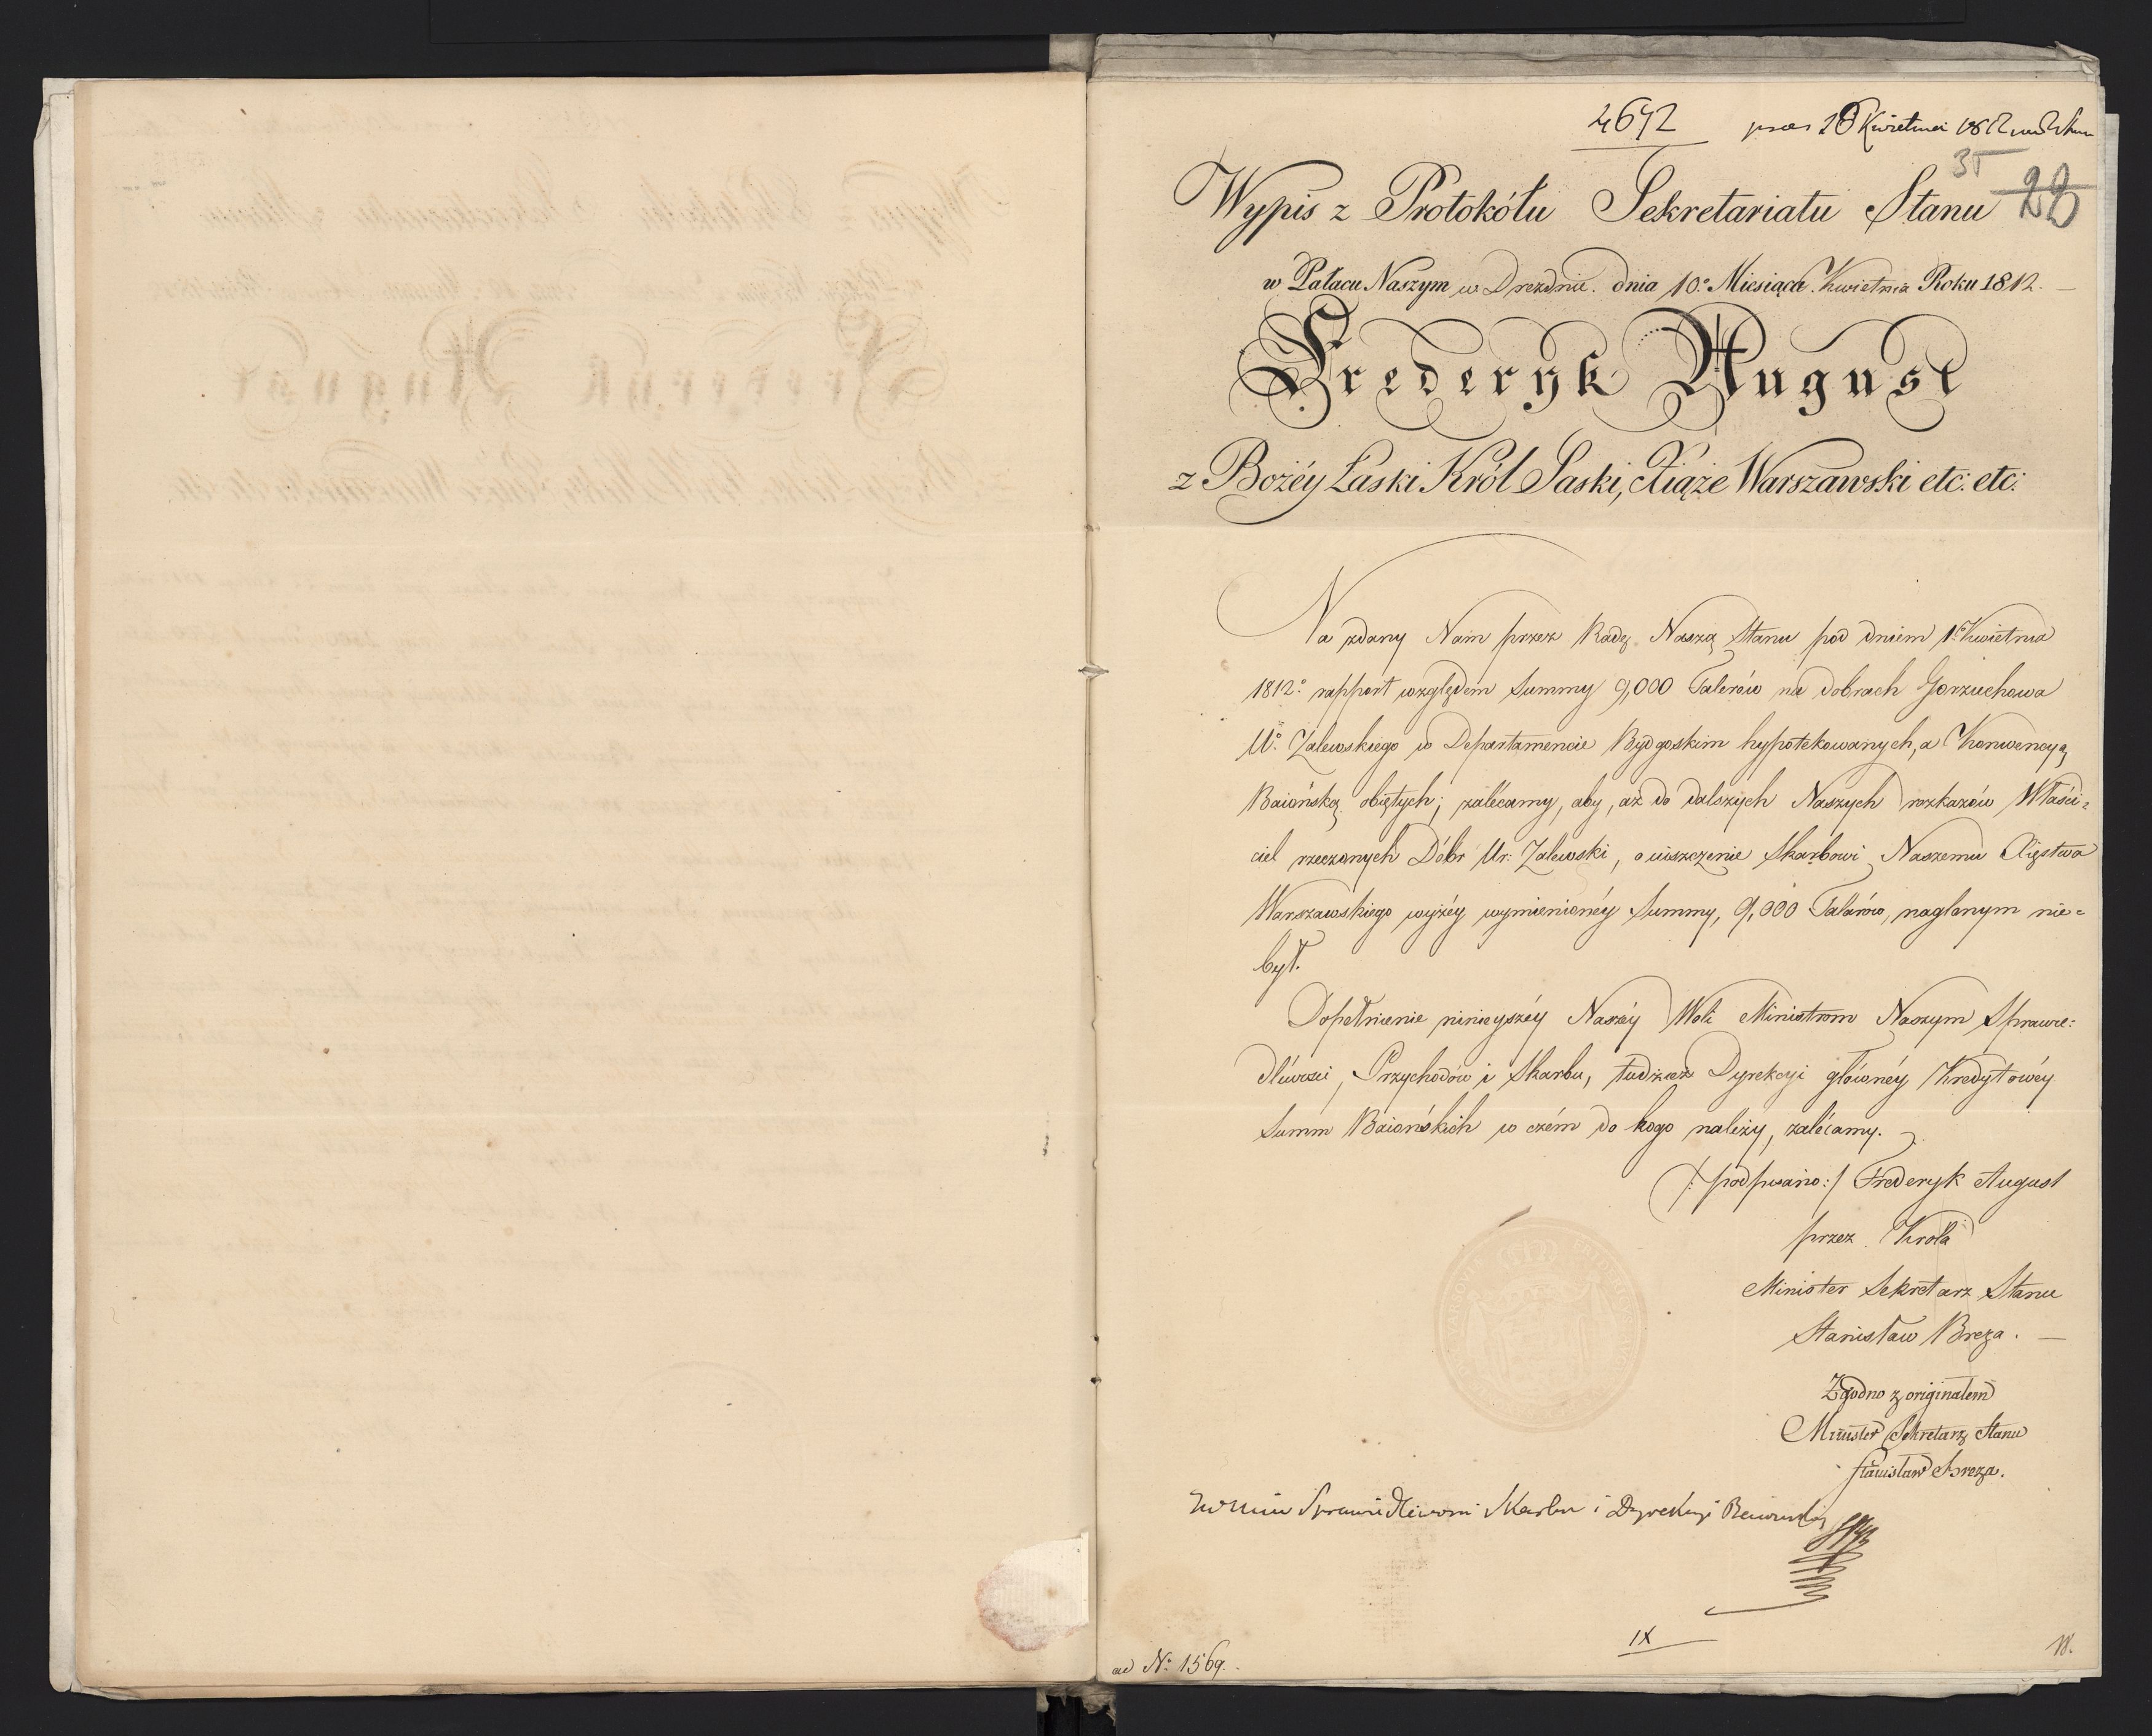 4692 18 Kwietnia 1812
35
22
Wypis z Protokółu Sekretariatu Stanu
w Pałacu Naszym w Dreznie. dnia 10.° Miesiąca Kwietnia Roku 1812. —
Frederyk August
z Bożéy Łaski Król Saski, Xiąże Warszawski etc: etc:
Na zdany Nam przez Radę Naszą Stanu pod dniem 1.° Kwietnia
1812.° rapport względem Summy 9,000 Talerów na dobrach Gorzuchowa
Ur. Zalewskiego w Departamencie Bydgoskim hypotekowanych, a Konwencyą
Baiońską obiętych; zalécamy, aby, aż do dalszych Naszych rozkazów Właści=
ciel rzeczonych Dóbr Ur: Zalewski, o uiszczenie Skarbowi Naszemu Xięstwa
Warszawskiego wyżéy wymienionéy Summy, 9,000 Talarów, naglonym nie=
był.
Dopełnienie ninieyszéy Naszéy Woli Ministrom Naszym Sprawie:
dliwości, Przychodów i Skarbu, tudzież Dyrekcyi głównéy Kredytowéy
Summ Baiońskich w czém do kogo należy, zalécamy.
/: podpisano :/ Frederyk August
przez Króla
Minister Sekretarz Stanu
Stanisław Breza. —
Zgodno z originałem
Minister Sekretarz Stanu
Stanisław Breza.
Sprawiedliwości Skarbu i Dyrekcyi
IX
ad N.° 1569.
18.